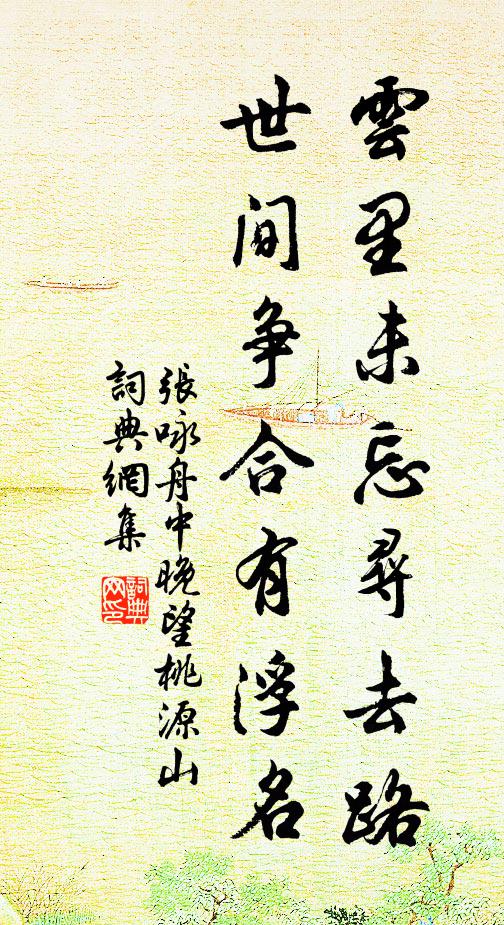 雲里未忘尋去路
世間争合有浮名
張咏舟中晚望桃源山
詞典網集
詞典
网印